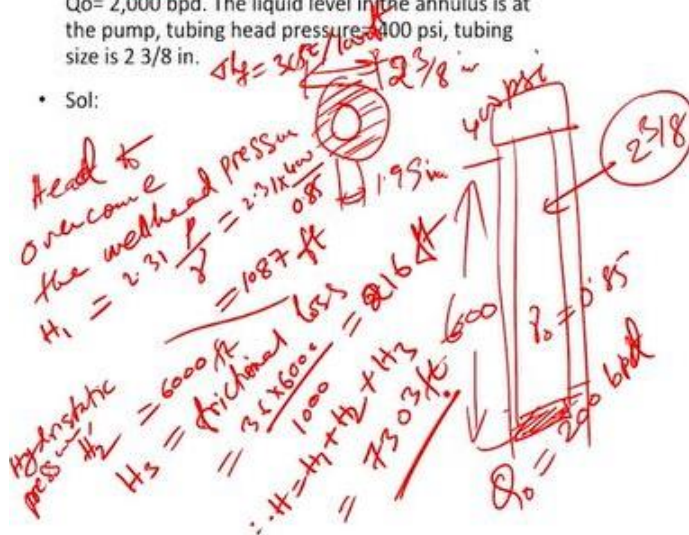 Qo= 2,000 bpd. The liquid level in the annulus is at
the pump, tubing head pressure= 400 psi, tubing
size is 2 3/8 in.
• Sol:
Δhf = 36ft/1000ft
2 3/8 in
400 psi
2 3/8
1.95 in
Head to
overcome
the wellhead pressure
H1 = 2.31 P/γ = 2.31x400/0.85
= 1087 ft
Hydrostatic
pressure, H2 = 6000 ft
H3 = frictional loss
= 36x6000/1000 = 216 ft
∴ H = H1 + H2 + H3
= 7303 ft.
6000
γo = 0.85
Qo = 200 bpd